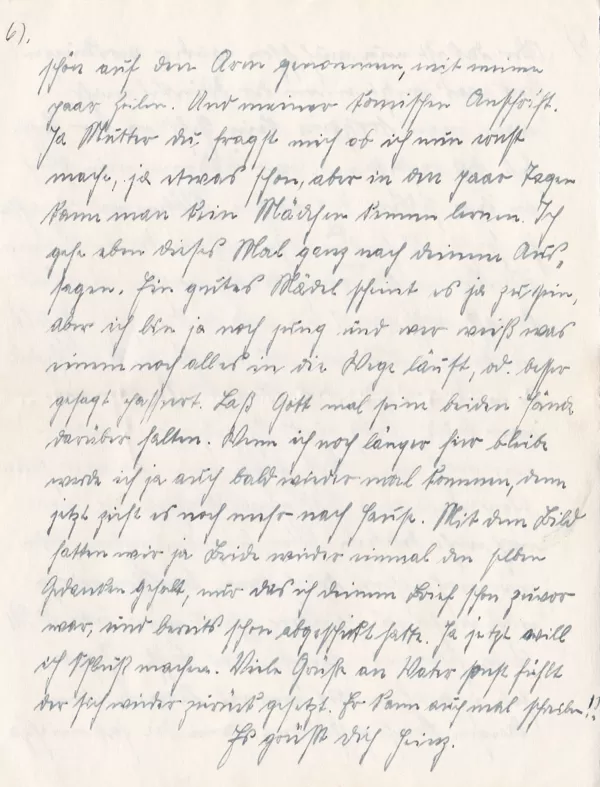 6).
schön auf den Arm genommen, mit meinen
paar Zeilen. Und meiner komischen Anschrift.
Ja Mutter du fragst mich ob ich nun ernst
mache, ja etwas schon, aber in den paar Tagen
kann man kein Mädchen kennen lernen. Ich
gehe eben dieses Mal ganz nach deinem Aus-
sagen. Ein gutes Mädel scheint es ja zu sein,
aber ich bin ja noch jung und wer weiß was
einem noch alles in die Wege läuft, od. besser
gesagt passiert. Laß Gott mal seine beiden Hände
darüber halten. Wenn ich noch länger hier bleibe
werde ich ja auch bald wieder mal kommen, denn
jetzt zieht es noch mehr nach Hause. Mit dem Bild
hatten wir ja Beide wieder einmal den selben
Gedanken gehabt, nur das ich deinem Brief schon zuvor
war, und bereits schon abgeschickt hatte. Ja jetzt will
ich Schluß machen. Viele Grüße an Vater sonst fühlt
der sich wieder zurück gesetzt. Er kann auch mal schreiben!!
Es grüßt dich Heinz.